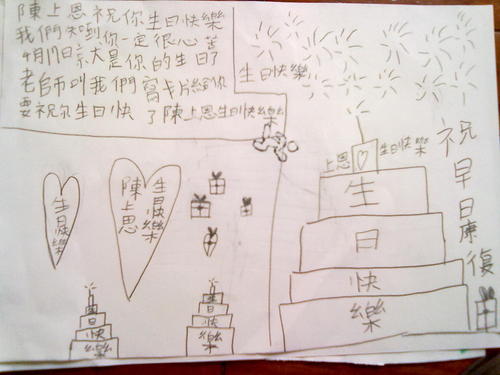 陳上恩祝你生日快樂
我們知到你一定很心苦
4月17日京大是你的生日了
老師叫我們寫卡片給你
要祝你生日快 了陳上恩生日快樂
生日快樂
上恩
生日快樂
生
日
快
樂
祝早日康復
生日快樂
陳上恩
生日快樂
生日快樂
生日快樂